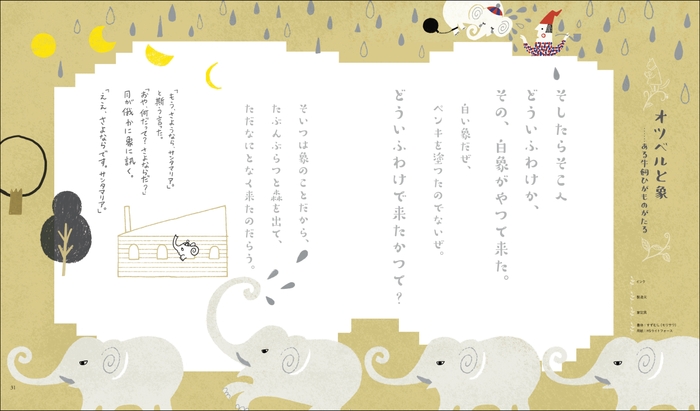 オツベルと象
――ある牛飼ひがものがたる
そしたらそこへ
どういふわけか、
その、白象がやつて来た。
白い象だぜ、
ペンキを塗つたのでないぜ。
どういふわけで来たかつて？
そいつは象のことだから、
たぶんぶらつと森を出て、
ただなにとなく来たのだらう。
「もう、さようなら、サンタマリア。」
と斯う言つた。
「おや、何だつて？さよならだ？」
月が俄かに象に訊く。
「ええ、さよならです。サンタマリア。」
31